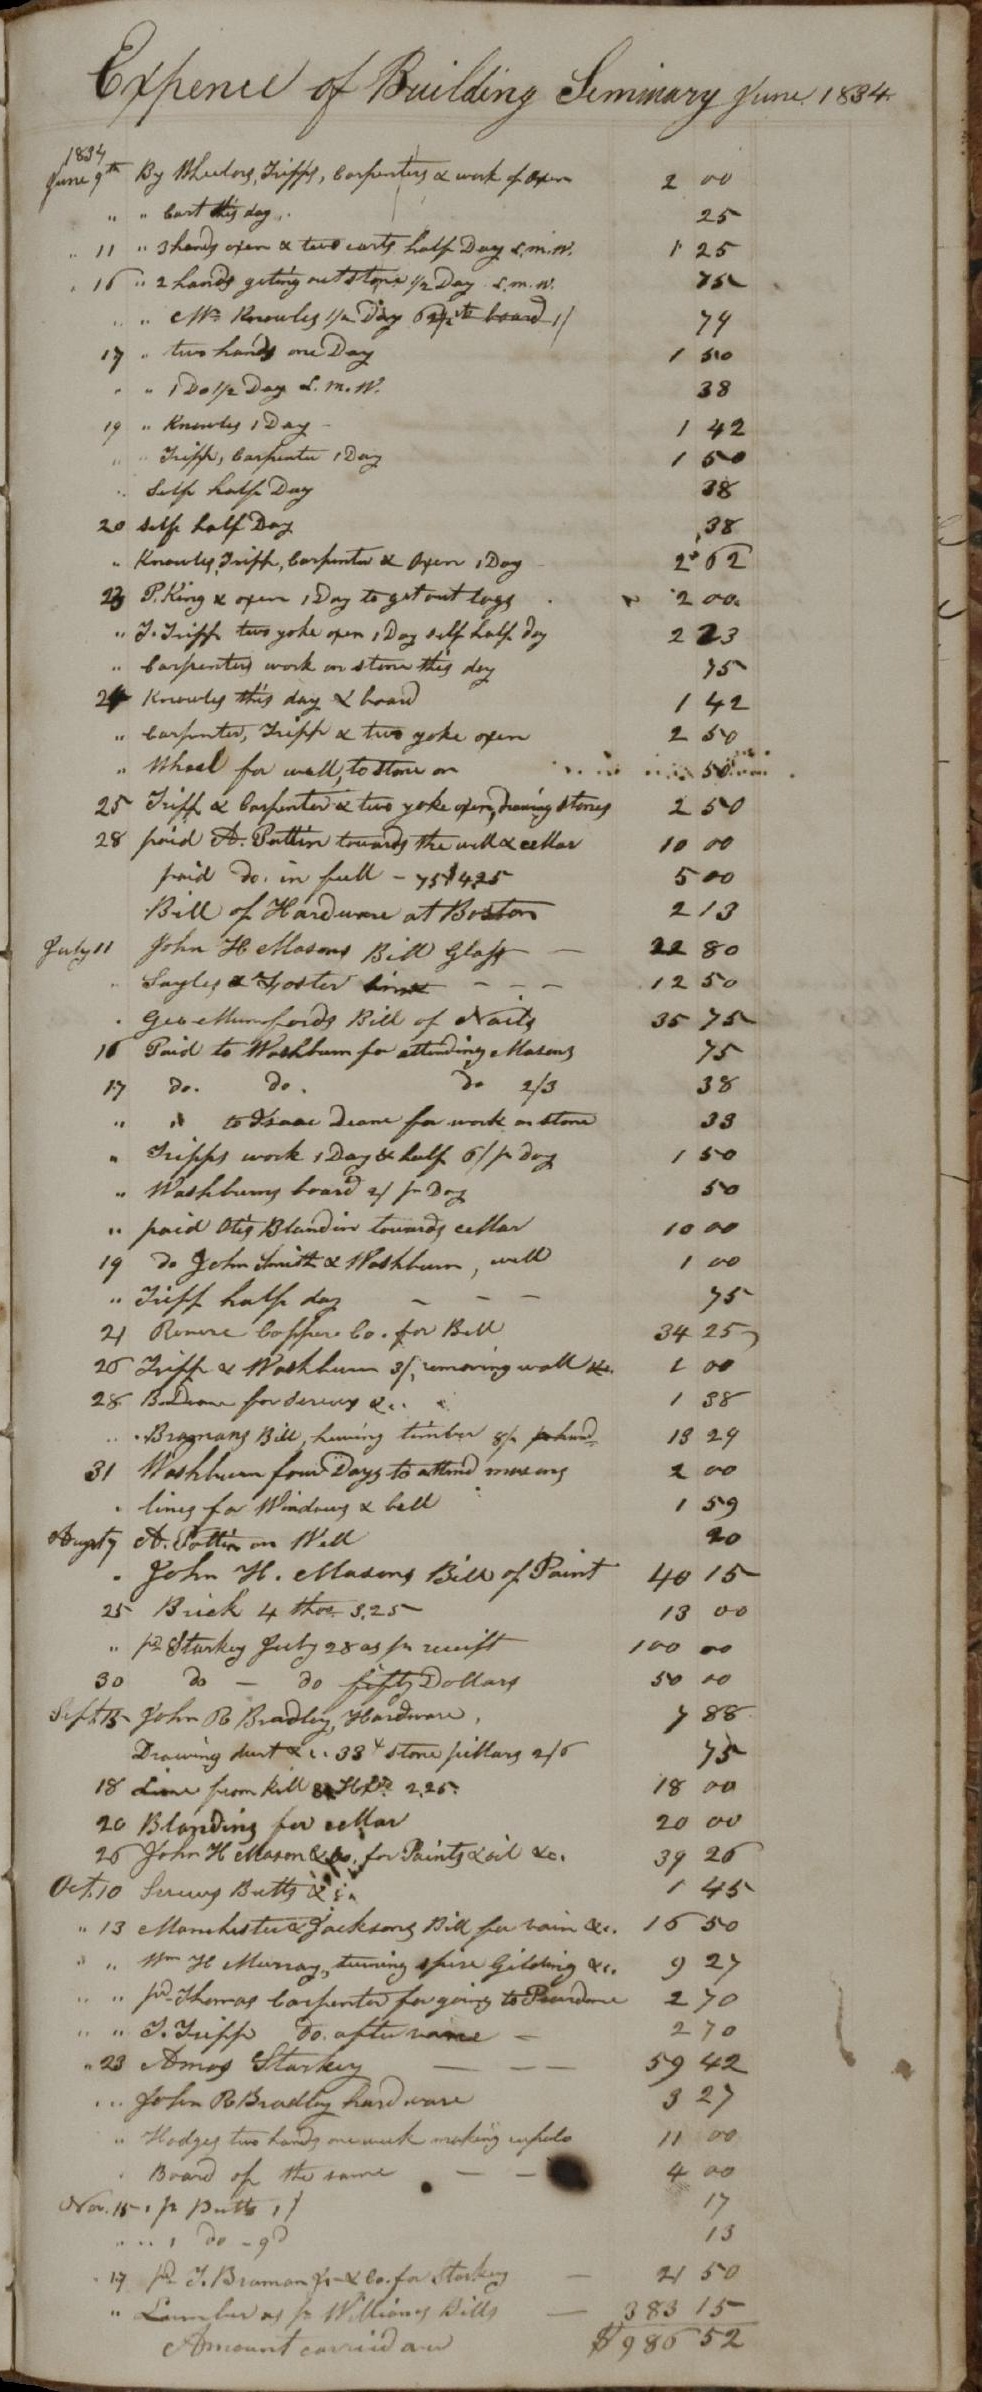 Expence of Building Seminary June 1834
1834
June 9th By Wheelers, Tripps, Carpenters & work of Oxen 2 00
" " Cart this day 25
" 11 " 3 hands oxen & two carts half Day L.M.W. 1 25
" 16 " 2 hands geting out stone 1/2 Day L.M.W. 75
" " Mr Knowles 1/2 Day board 1/ 74
17 " two hands one Day 1 50
" " 1 Do 1/2 Day L.M.W. 38
19 " Knowles 1 Day 1 42
" " Tripp, Carpenter 1 Day 1 50
" Self half Day 38
20 self half Day 38
" Knowles, Tripp, Carpenter & Oxen 1 Day 2 62
23 P. King & oxen 1 Day to get out logs 2 00
" J. Tripp two yoke oxen 1 Day self half day 2 23
" Carpenters work on stone this day 75
24 Knowles this day & board 1 42
" Carpenter, Tripp & two yoke oxen 2 50
" Wheel for well, to stone on 50
25 Tripp & Carpenter & two yoke oxen, drawing stones 2 50
28 paid A. Pattin towards the well & cellar 10 00
paid do. in full - 75 $4,25 5 00
Bill of Hardware at Boston 2 13
July 11 John H Masons Bill Glass 22 80
" Sayles & Foster 12 50
" Geo Mumfords Bill of Nails 35 75
16 Paid to Washburn for attending Masons 75
17 do. do. do 2/3 38
" " to Isaac Deane for work on stone 33
" Tripps work 1 Day & half 6/ pr Day 1 50
" Washburns board 2/ pr Day 50
" paid Otis Blandin towards cellar 10 00
19 do John Smith & Washburn, well 1 00
" Tripp half day 75
21 Revere Copper Co. for Bell 34 25
26 Tripp & Washburn 3/, removing wall &c. 1 00
28 for screws &c. 1 38
" Bramans Bill, hewing timber 8/ pr hund 13 29
31 Washburn four Days to attend masons 2 00
" lines for Windows & bell 1 59
August 7 A. Pattin on Well 20
" John H. Masons Bill of Paint 40 15
25 Brick 4 thos 3.25 13 00
" pd Starkey July 28 as pr receipt 100 00
30 do - do fifty Dollars 50 00
Sept. 15 John R Bradley, Hardware, 7 88
Drawing dirt &c. 33 stone pillars 2/6 75
18 Lime from kill 8 Hhds 2,25 18 00
20 Blanding for cellar 20 00
26 John H Mason & Co. for Paints & oil &c. 39 26
Oct. 10 Screws Butts &c. 1 45
" 13 Manchester & Jacksons Bill for vain &c. 16 50
" " Wm H Murray, turning spire Gilding &c. 9 27
" " pd Thomas Carpenter for going to 2 70
" " J. Tripp do. after vane 2 70
" 23 Amos Starkey 59 42
" " John R Bradley hardware 3 27
" Hodges two hands one week making cupolo 11 00
" Board of the same 4 00
Nov. 15 1 pr Butts 1/ 17
" " 1 do - 9d 13
" 17 pd T. Braman Jr & Co. for Starkey 21 50
" Lumber as pr Williams Bills 383 15
Amount carried over $986 52